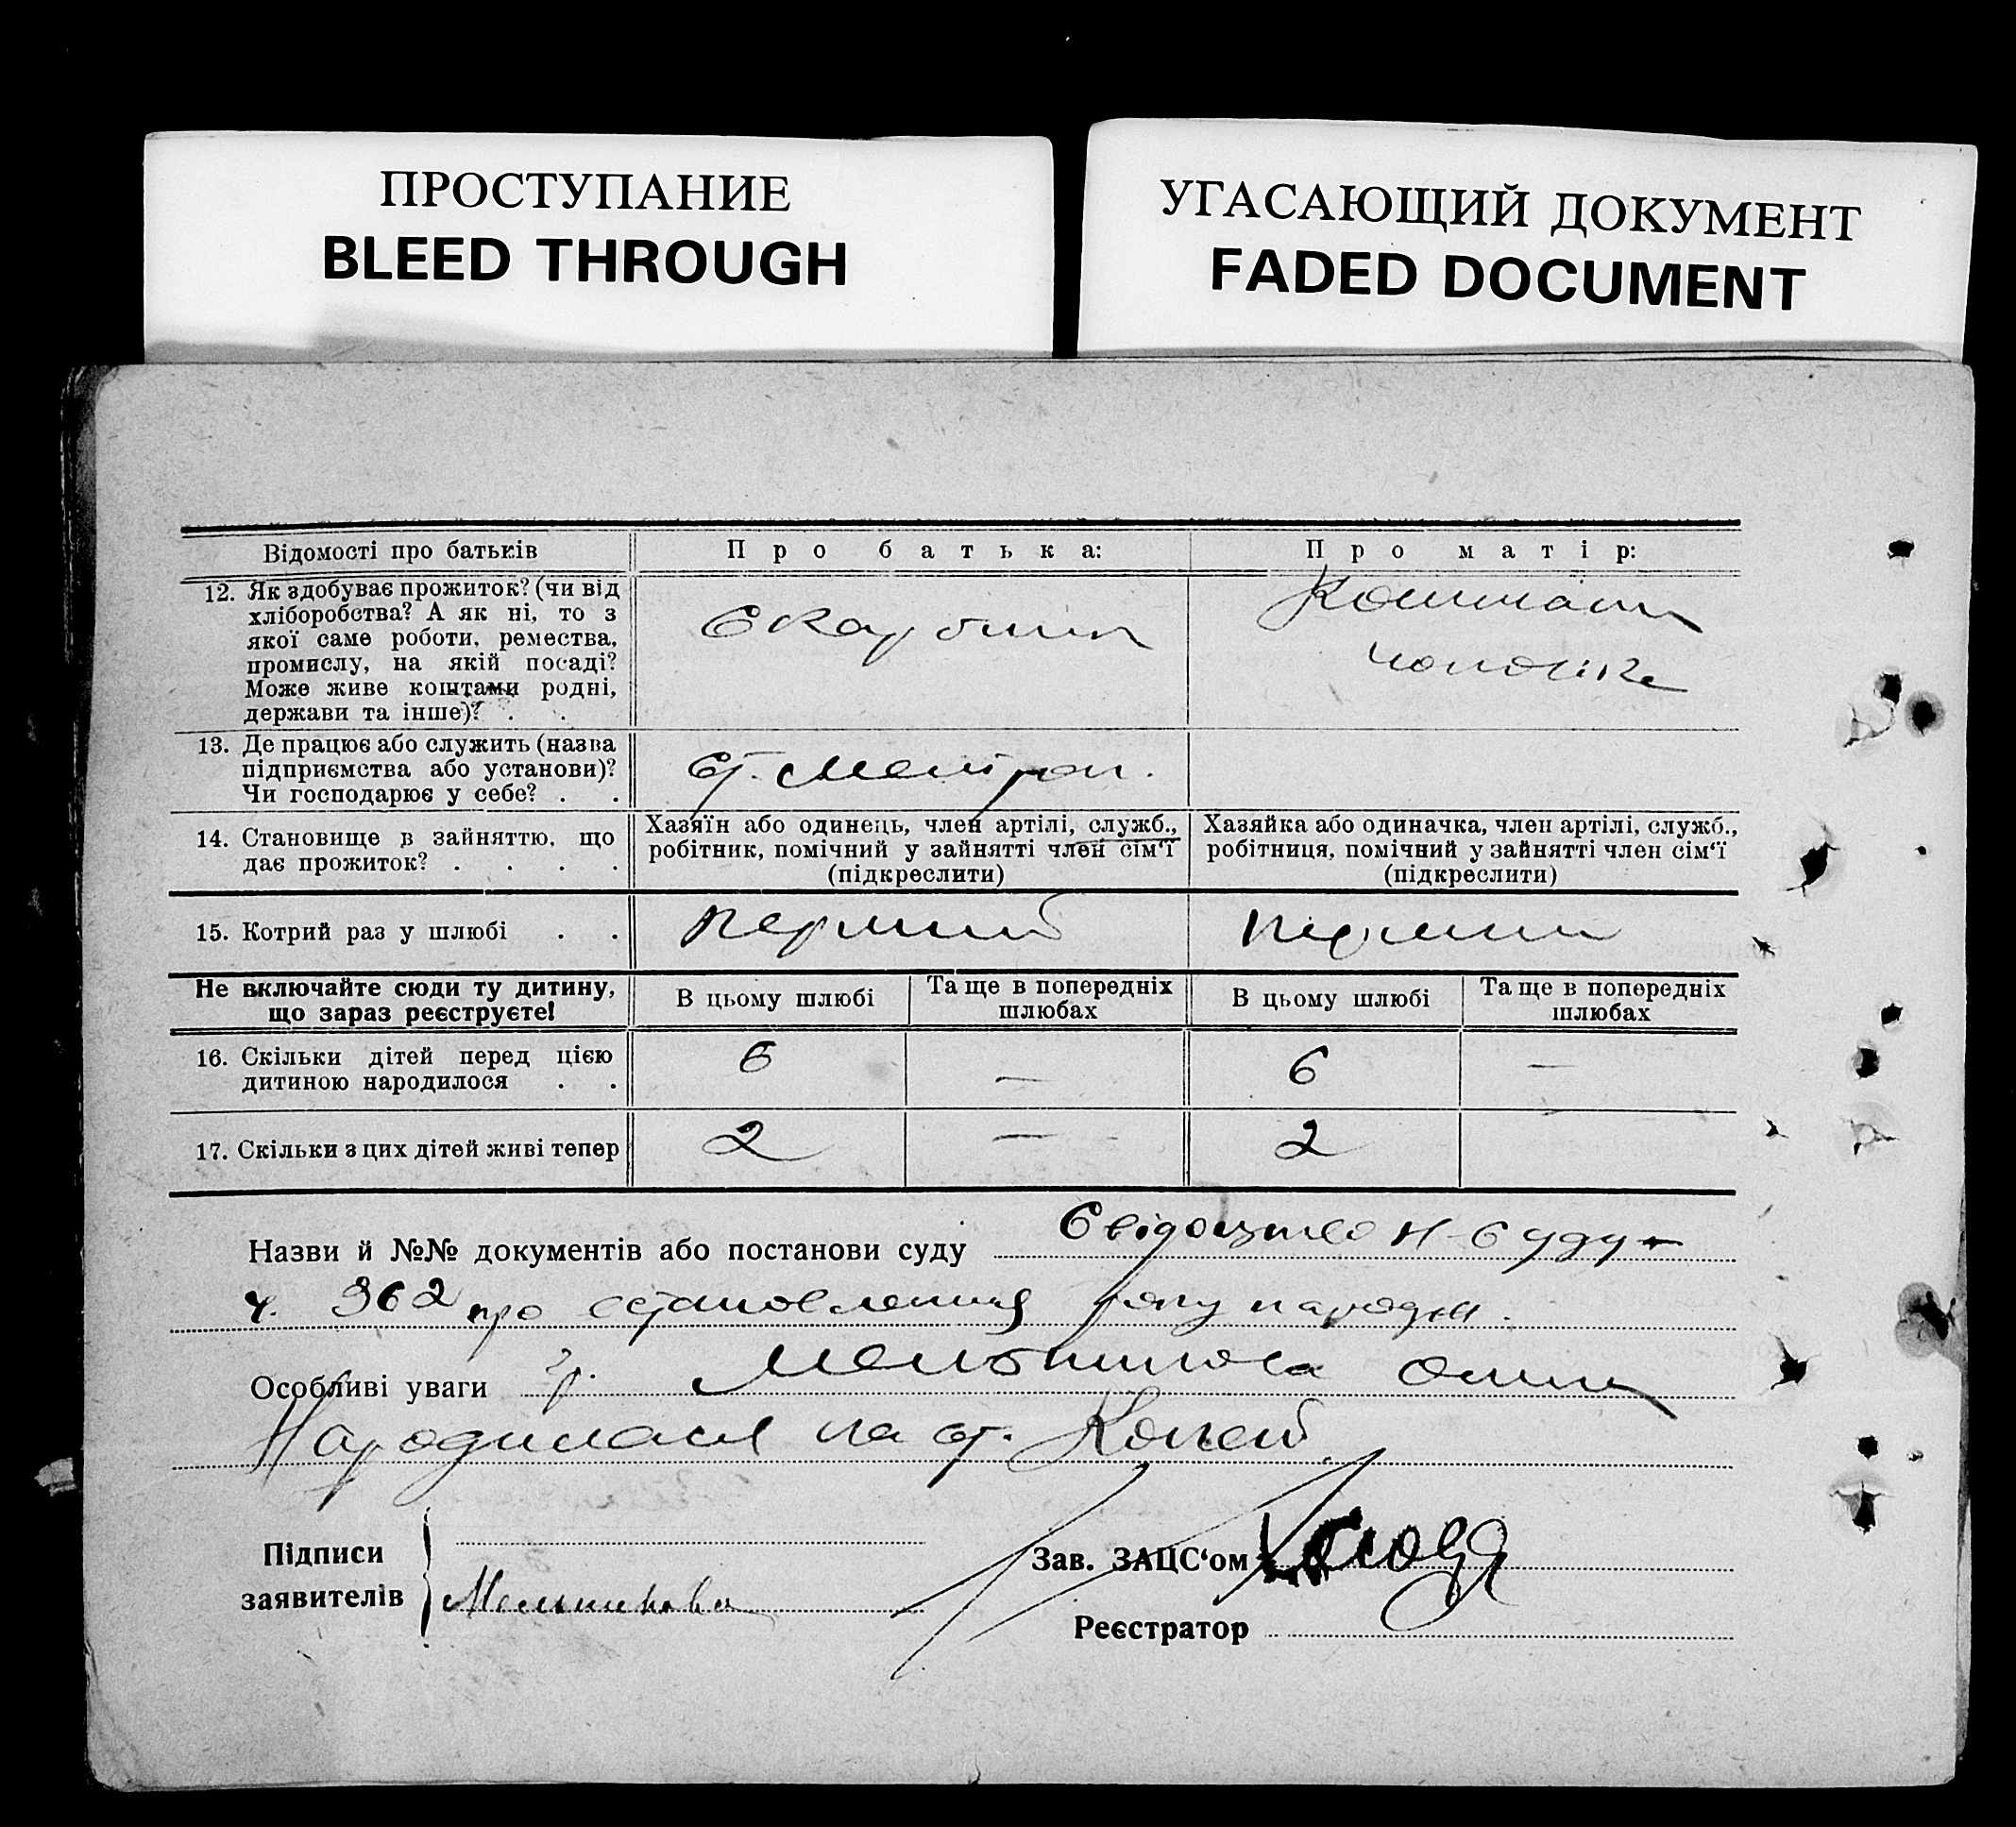 ПРОСТУПАНИЕ
BLEED THROUGH
УГАСАЮЩИЙ ДОКУМЕНТ
FADED DOCUMENT
Відомості про батьків
Про батька:
Про матір:
12. Як здобуває прожиток? (чи від
хліборобства? А як ні, то з
якої саме роботи, ремества,
промислу, на якій посаді?
Може живе коштами родні,
держави та інше)? . .
Скарбник
Коштами
чоловіка
13. Де працює або служить (назва
підприємства або установи)?
Чи господарює у себе? . .
Ст.
14. Становище в зайняттю, що
дає прожиток? . . . .
Хазяїн або одинець, член артілі, служб.,
робітник, помічний у зайнятті член сім‘ї
(підкреслити)
Хазяйка або одиначка, член артілі, служб.,
робітниця, помічний у зайнятті член сім‘ї
(підкреслити)
15. Котрий раз у шлюбі . .
перший
перший
Не включайте сюди ту дитину,
що зараз реєструєте!
В цьому шлюбі
Та ще в попередніх
шлюбах
В цьому шлюбі
Та ще в попередніх
шлюбах
16. Скільки дітей перед цією
дитиною народилося . .
6
—
6
—
17. Скільки з цих дітей живі тепер
2
—
2
Назви й №№ документів або постанови суду Свідоцтво Н-Суду
ч. 362 про встановлення року народж.
Особливі уваги гр. Мельникова
Народилася на ст.
Підписи
заявителів
Мельникова
Зав. ЗАЦС‘ом
Реєстратор